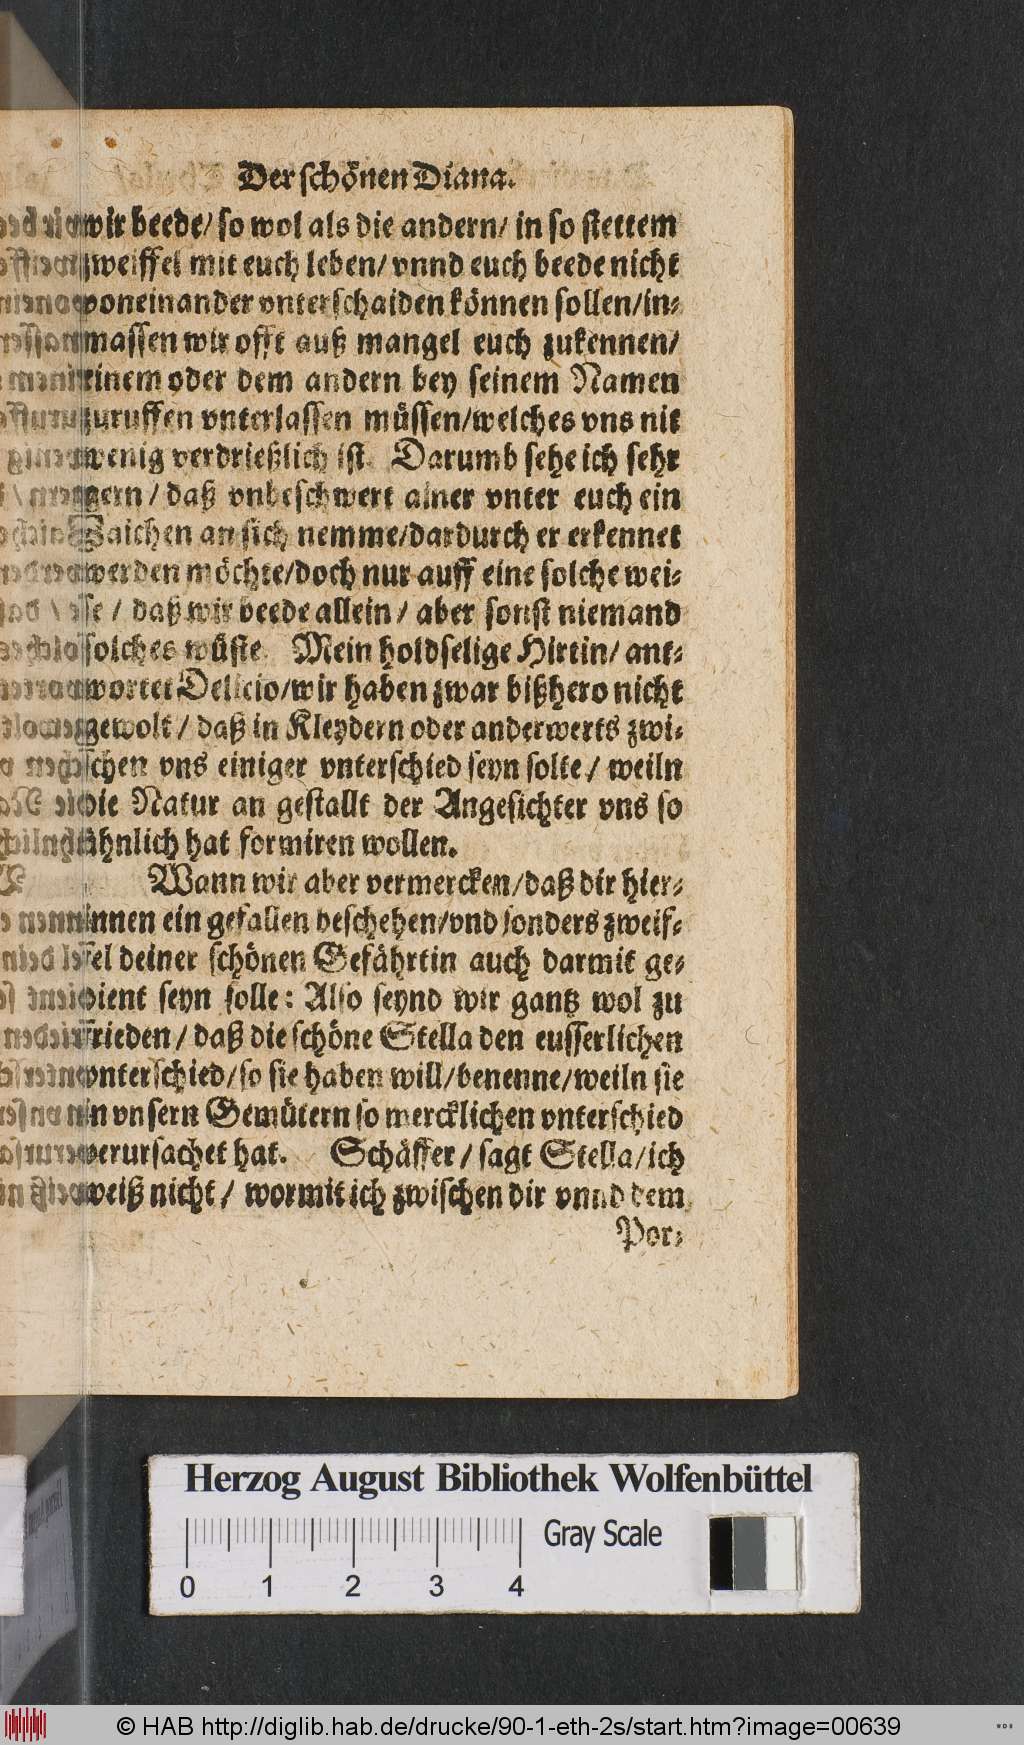 Der schönen Diana.
wir beede/ so wol als die andern/ in so stettem
zweiffel mit euch leben/ vnnd euch beede nicht
voneinander vnterschaiden können sollen/in-
massen wir offt auß mangel euch zukennen/
einem oder dem andern bey seinem Namen
zuruffen vnterlassen müssen/welches vns nit
wenig verdrießlich ist. Darumb sehe ich sehr
gern/ daß vnbeschwert ainer vnter euch ein
Zaichen an sich nemme/dardurch er erkennet
werden möchte/doch nur auff eine solche wei-
se/ daß wir beede allein/ aber sonst niemand
solches wüste. Mein holdselige Hirtin/ ant-
wortet Delicio/wir haben zwar bißhero nicht
gewolt/ daß in Kleydern oder anderwerts zwi-
schen vns einiger vnterschied seyn solte/ weiln
die Natur an gestallt der Angesichter vns so
ähnlich hat formiren wollen.
Wann wir aber vermercken/daß dir hier-
innen ein gefallen beschehen/vnd sonders zweif-
fel deiner schönen Gefährtin auch darmit ge-
dient seyn solle: Also seynd wir gantz wol zu
frieden/ daß die schöne Stella den eusserlichen
vnterschied/so sie haben will/benenne/weiln sie
in vnsern Gemütern so mercklichen vnterschied
verursachet hat. Schäffer/ sagt Stella/ich
weiß nicht/ wormit ich zwischen dir vnnd dem
Por-
Herzog August Bibliothek Wolfenbüttel
Gray Scale
0 1 2 3 4
© HAB http://diglib.hab.de/drucke/90-1-eth-2s/start.htm?image=00639